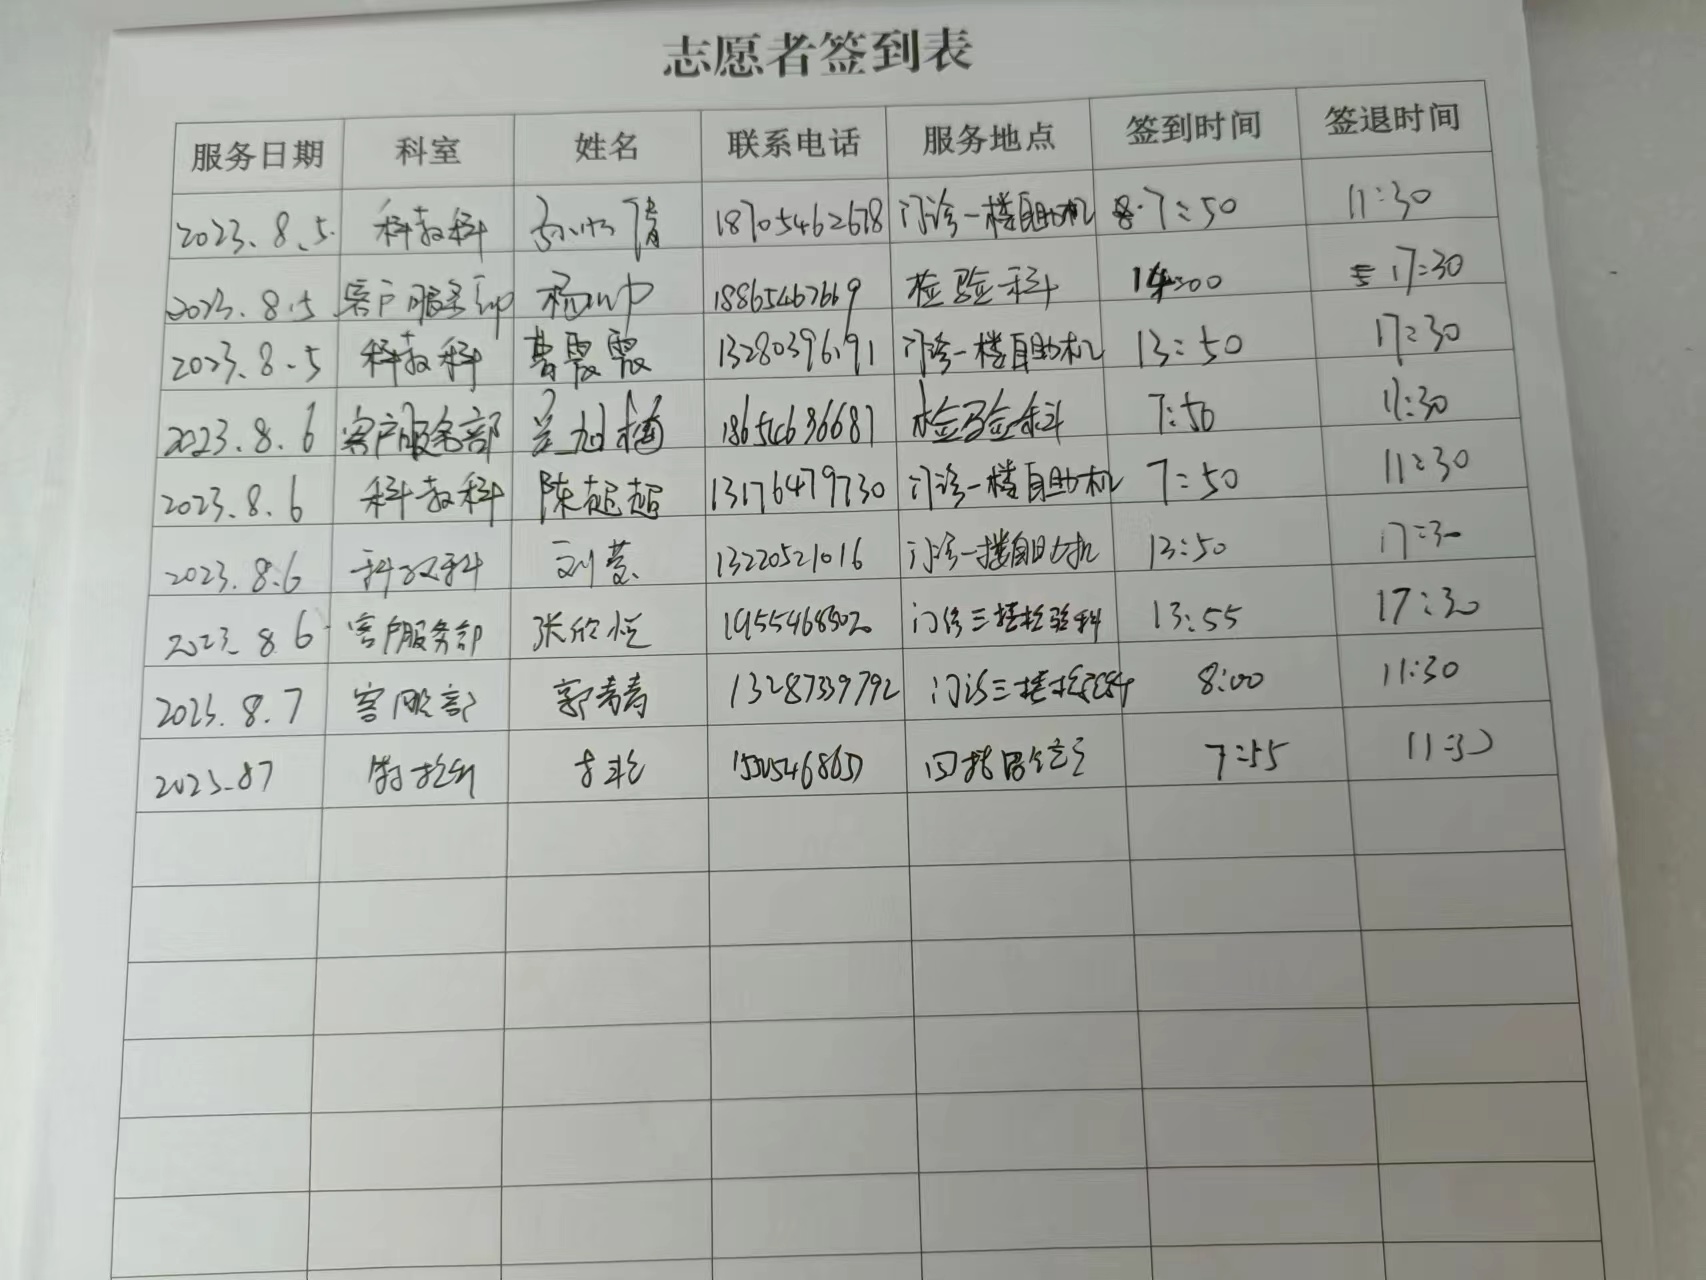 志愿者签到表
服务日期 科室 姓名 联系电话 服务地点 签到时间 签退时间
2023.8.5. 科教科 18705462678 门诊一楼自助机 7:50 11:30
2023.8.5 客户服务部 杨帅 18865467669 检验科 14:00 17:30
2023.8.5 科教科 曹霞霞 13280396191 门诊一楼自助机 13:50 17:30
2023.8.6 客户服务部 18654636687 检验科 7:50 11:30
2023.8.6 科教科 陈超超 13176479730 门诊一楼自助机 7:50 11:30
2023.8.6 科教科 刘莹 13220521016 门诊一楼自助机 13:50 17:30
2023.8.6 客户服务部 张欣恒 门诊三楼检验科 13:55 17:30
2023.8.7 客服部 郭青青 13287339792 门诊三楼检验科 8:00 11:30
2023.87 7:55 11:30